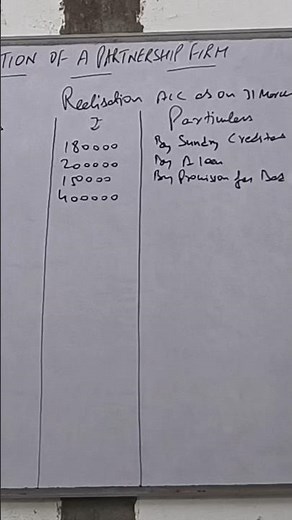 TION OF A PARTNERSHIP FIRM
Realisation A/C as on 31 March
₹ Particulars
180000 By Sundry Creditors
200000 By loan
150000 By Provision for
400000